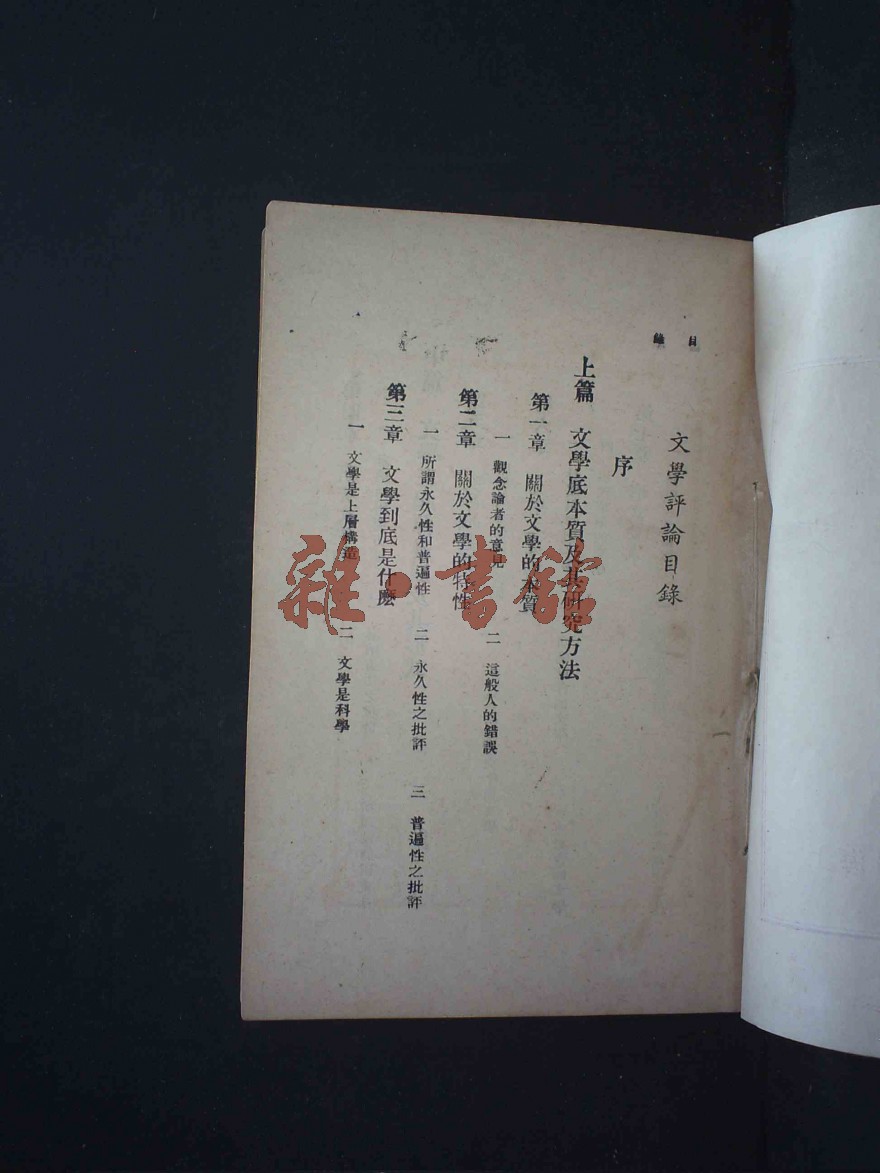 目錄
文學評論目錄
序
上篇 文學底本質及其研究方法
第一章 關於文學的本質
一 觀念論者的意見 二 這般人的錯誤
第二章 關於文學的特性
一 所謂永久性和普遍性 二 永久性之批評 三 普遍性之批評
第三章 文學到底是什麽
一 文學是上層構造 二 文學是科學
一
雜·書館